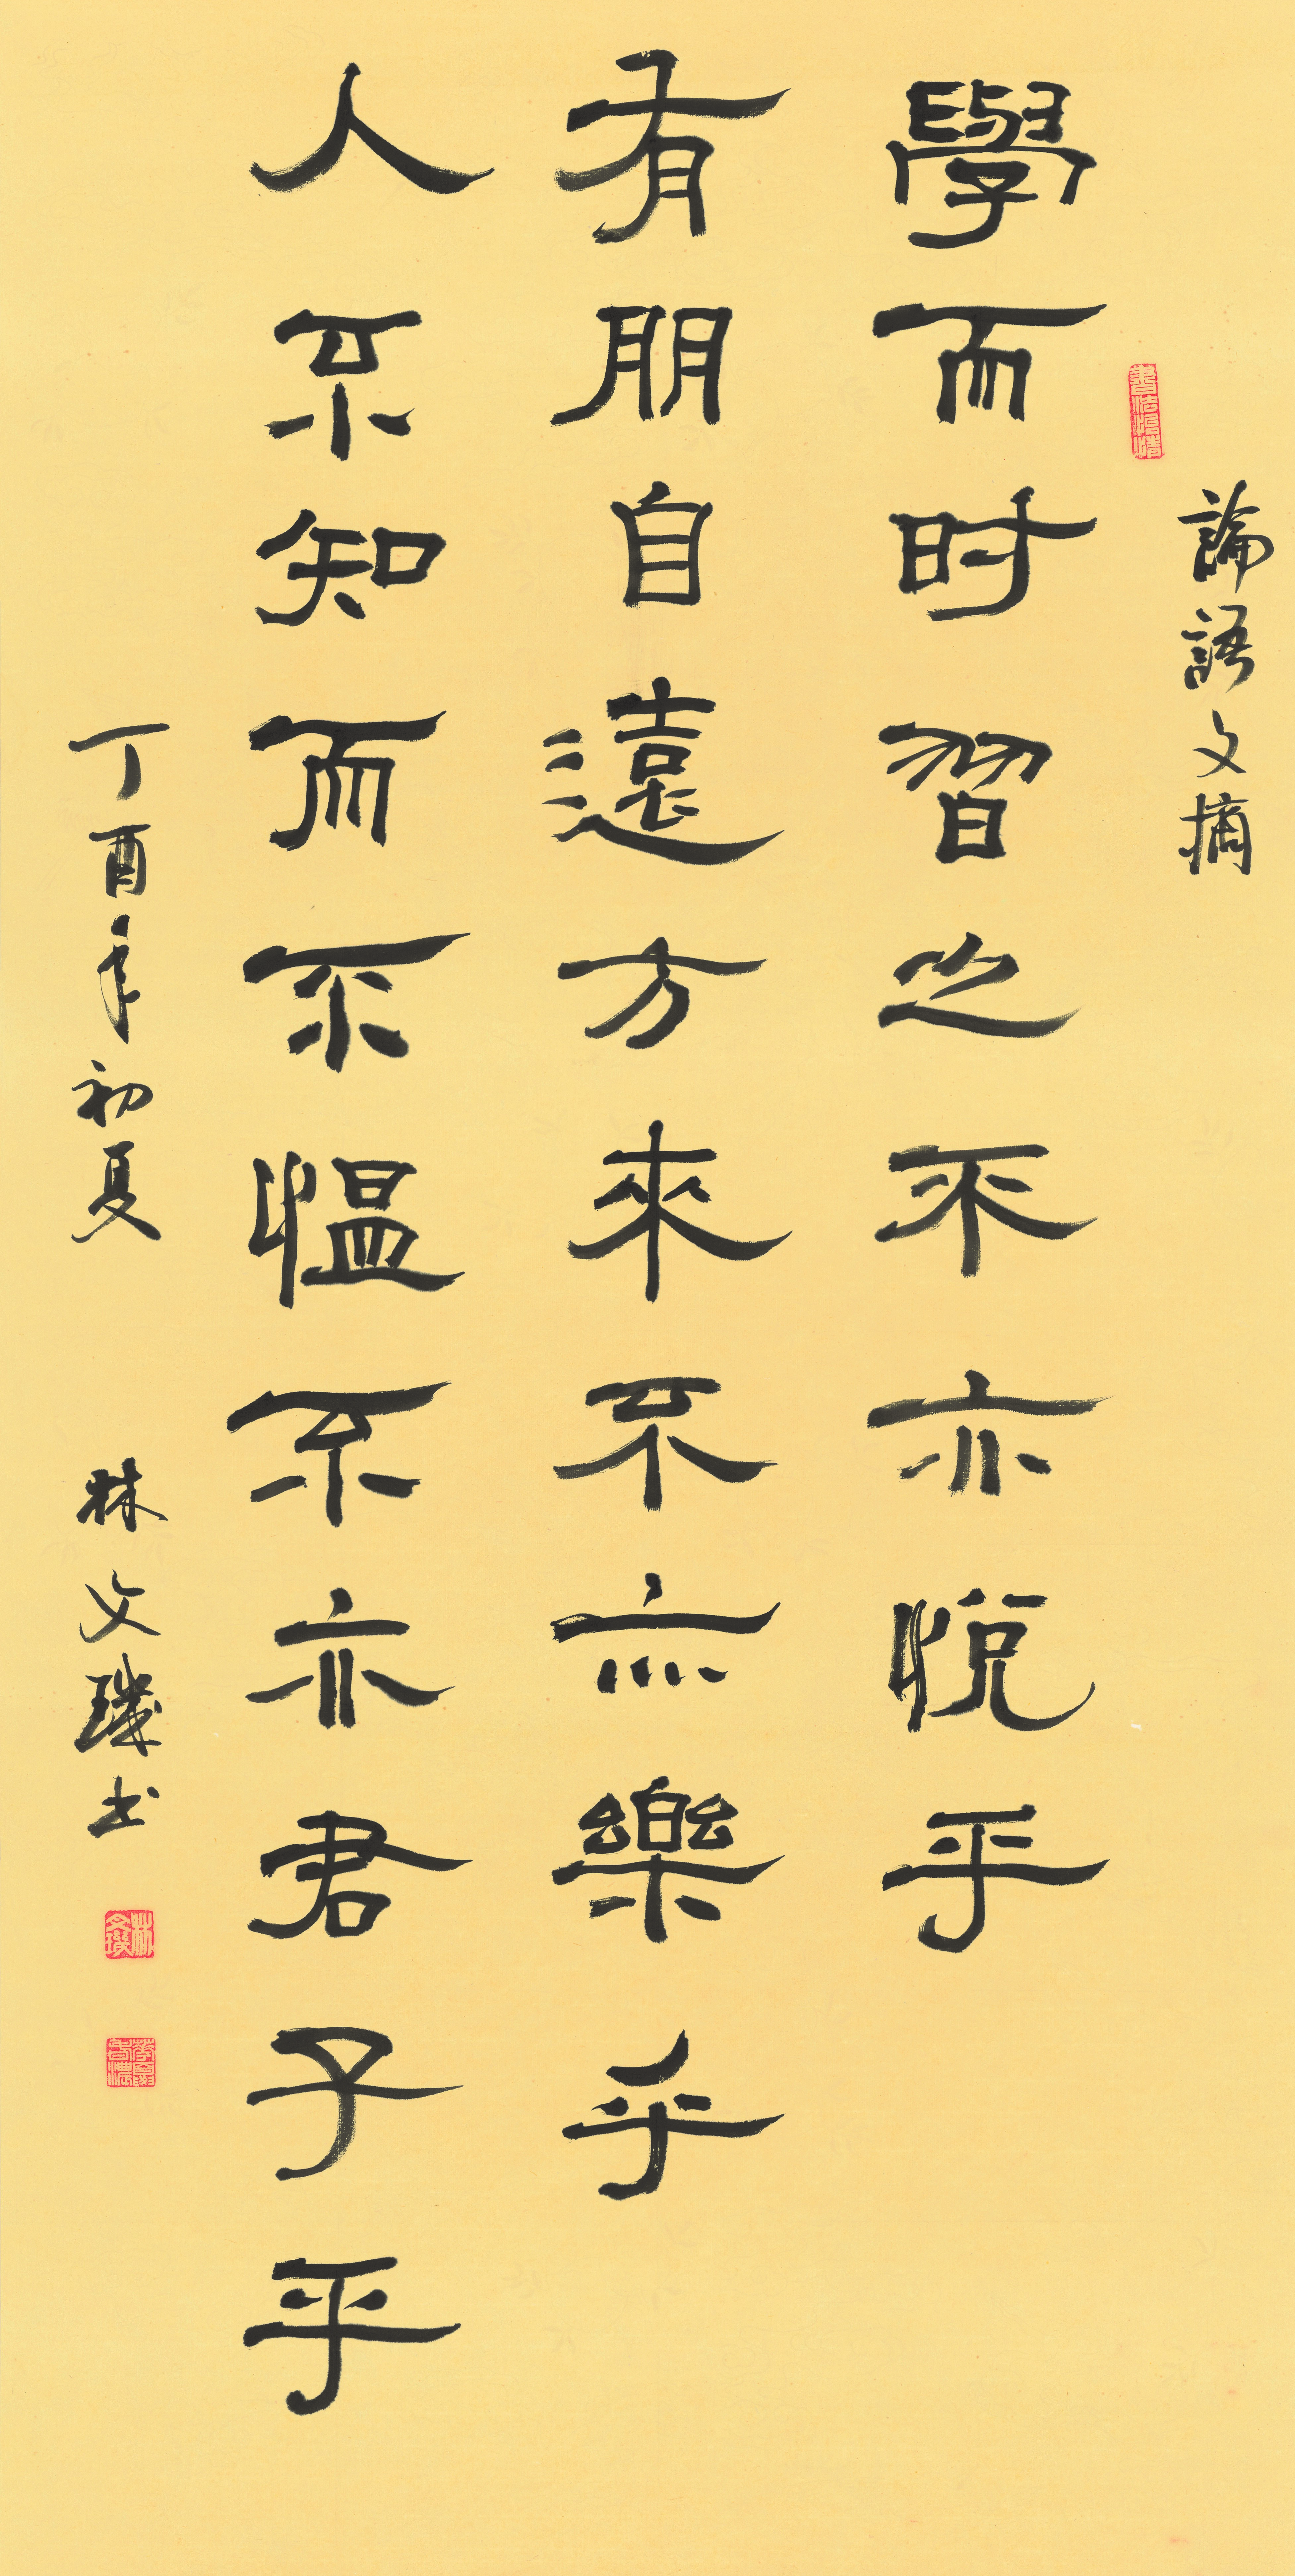 論語文摘
書法怡情
學而时習之不亦悅乎
有朋自遠方來不亦樂乎
人不知而不愠不亦君子乎
丁酉年初夏 林文璣书
林文璣